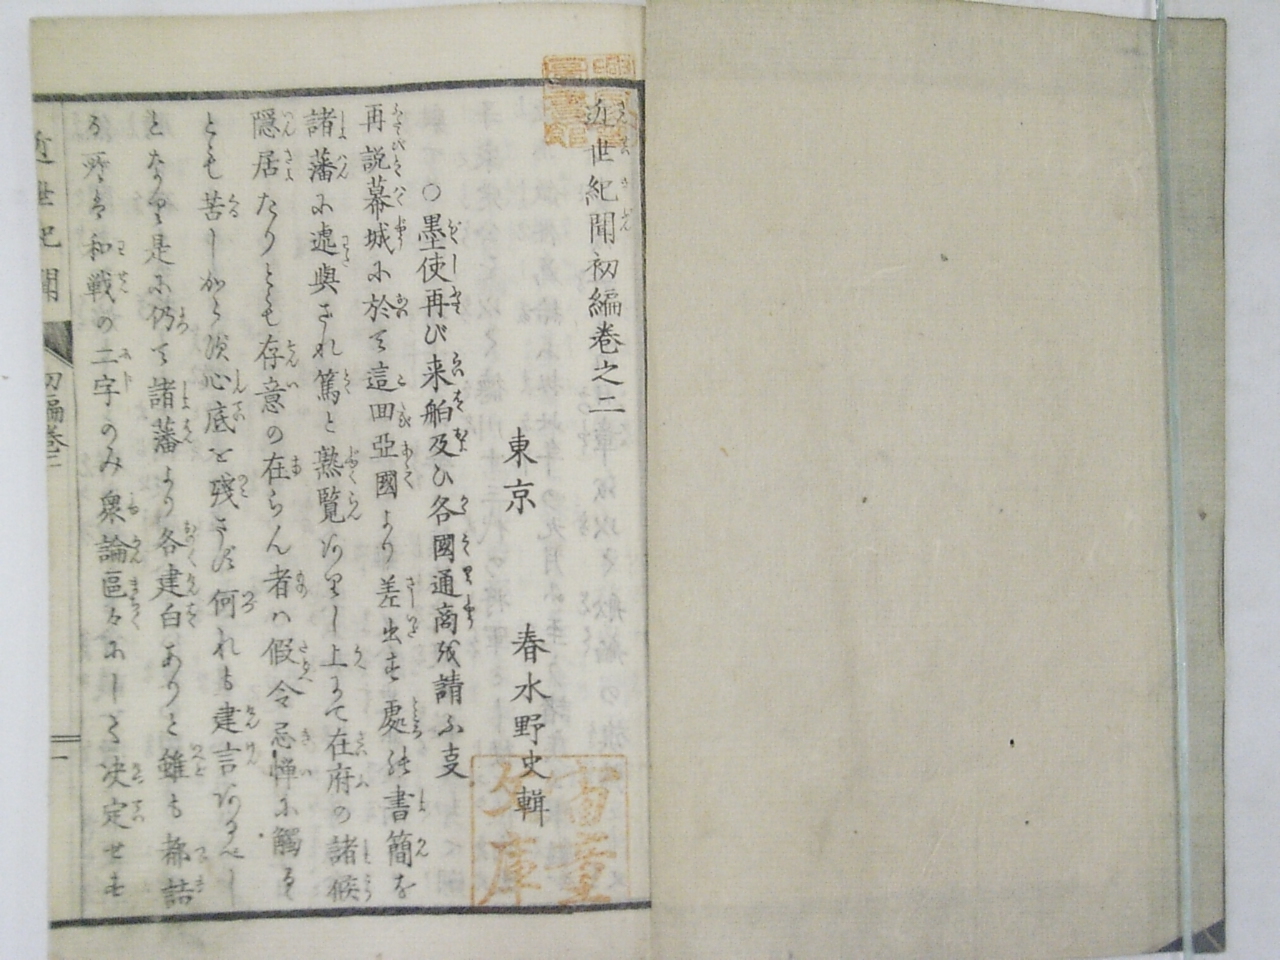 近世紀聞初編巻之二
東京 春水野史輯
○墨使再び来舶及ひ各國通商を請ふ支
再説幕城に於て這囬亞國より差出せし處の書簡を
諸藩に逓與され篤と熟覧ありし上にて在府の諸候
隠居たりとも存意の在らん者ハ假令忌憚に觸るゝ
とも苦しからず心底を残さず何れも建言あるべし
となり是に仍て諸藩より各建白ありと雖も都詰
る所は和戦の二字のみ衆論區々にして决定せず
近世紀聞
初編巻二